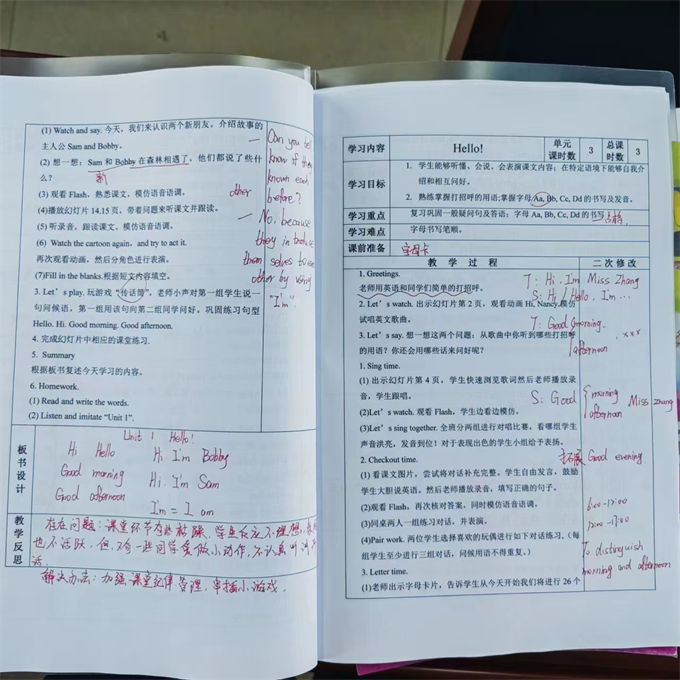 (1) Watch and say. 今天，我们来认识两个新朋友。介绍故事的
主人公 Sam and Bobby.
(2) 想一想：Sam 和 Bobby 在森林相遇了，他们都说了些什
么？
新
(3) 观看 Flash，熟悉课文，模仿语音语调。
(4)播放幻灯片 14.15 页，带着问题来听课文并跟读。
(5) 听录音，跟读课文、模仿语音语调。
(6) Watch the cartoon again, and try to act it.
再次观看动画，然后分角色进行表演。
(7)Fill in the blanks.根据短文内容填空。
3. Let's play. 玩游戏"传话筒"，老师小声对第一组学生说一
句问候语，第一组用该句向第二组同学问好。巩固练习句型
Hello. Hi. Good morning. Good afternoon.
4. 完成幻灯片中相应的课堂练习.
5. Summary
根据板书复述今天学习的内容。
6. Homework.
(1) Read and write the words.
(2) Listen and imitate "Unit 1".
Can you tell
know if they
known each
other
before?
No, because
they introduce
themselves to
other by using
"I'm"
板书设计
Unit 1 Hello!
Hi Hello Hi. I'm Bobby
Good morning Hi. I'm Sam
Good afternoon
I'm = I am
教学反思
存在问题：课堂环节有些枯燥，学生反应不理想，
也不活跃，但，有一些同学爱做小动作，不认真听讲
话。
解决办法：加强课堂纪律管理，穿插小游戏。
学习内容 Hello! 单元课时数 3 总课时数 3
学习目标
1. 学生能够听懂、会说、会表演课文内容；在特定语境下能够自我介
绍和相互问好。
2. 熟练掌握打招呼的用语;掌握字母 Aa, Bb, Cc, Dd 的书写及发音。
学习重点 复习巩固一般疑问句及答语；字母 Aa, Bb, Cc, Dd 的书写
学习难点 字母书写笔顺。
课前准备 字母卡
教 学 过 程 二 次 修 改
1. Greetings.
老师用英语和同学们简单的打招呼。
2. Let's watch. 出示幻灯片第 2 页，观看动画 Hi, Nancy.模仿
试唱英文歌曲。
3. Let's say. 想一想这两个问题：从歌曲中你听到哪些打招呼
的用语？你还会用哪些话来问好呢？
1. Sing time.
(1) 出示幻灯片第 4 页，学生快速浏览歌词然后老师播放录
音，学生跟唱。
(2)Let's watch. 观看 Flash，学生边看边模仿。
(3)Let's sing together. 全班分两组进行对唱比赛，看哪组学生
声音洪亮，发音到位！对于表现出色的学生小组给予表扬。
2. Checkout time.
(1) 看课文图片，尝试将对话补充完整。学生自由发言，鼓励
学生大胆说英语。然后老师播放录音，填写正确的句子。
(2)观看 Flash，再次核对答案，同时模仿语音语调。
(3)同桌两人一组练习对话，并表演。
(4)Pair work. 两位学生选择喜欢的玩偶进行如下对话练习。（每
组学生至少进行三组对话，问候用语不得重复。）
3. Letter time.
(1)老师出示字母卡片，告诉学生从今天开始我们将进行 26 个
T: Hi, I'm Miss Zhang
S: Hi / Hello, I'm ...
T: Good morning,
afternoon ×××
S: Good { morning
afternoon Miss Zhang
拓展 Good evening
6:00-12:00
12:00-17:00
To distinguish
morning and afternoon